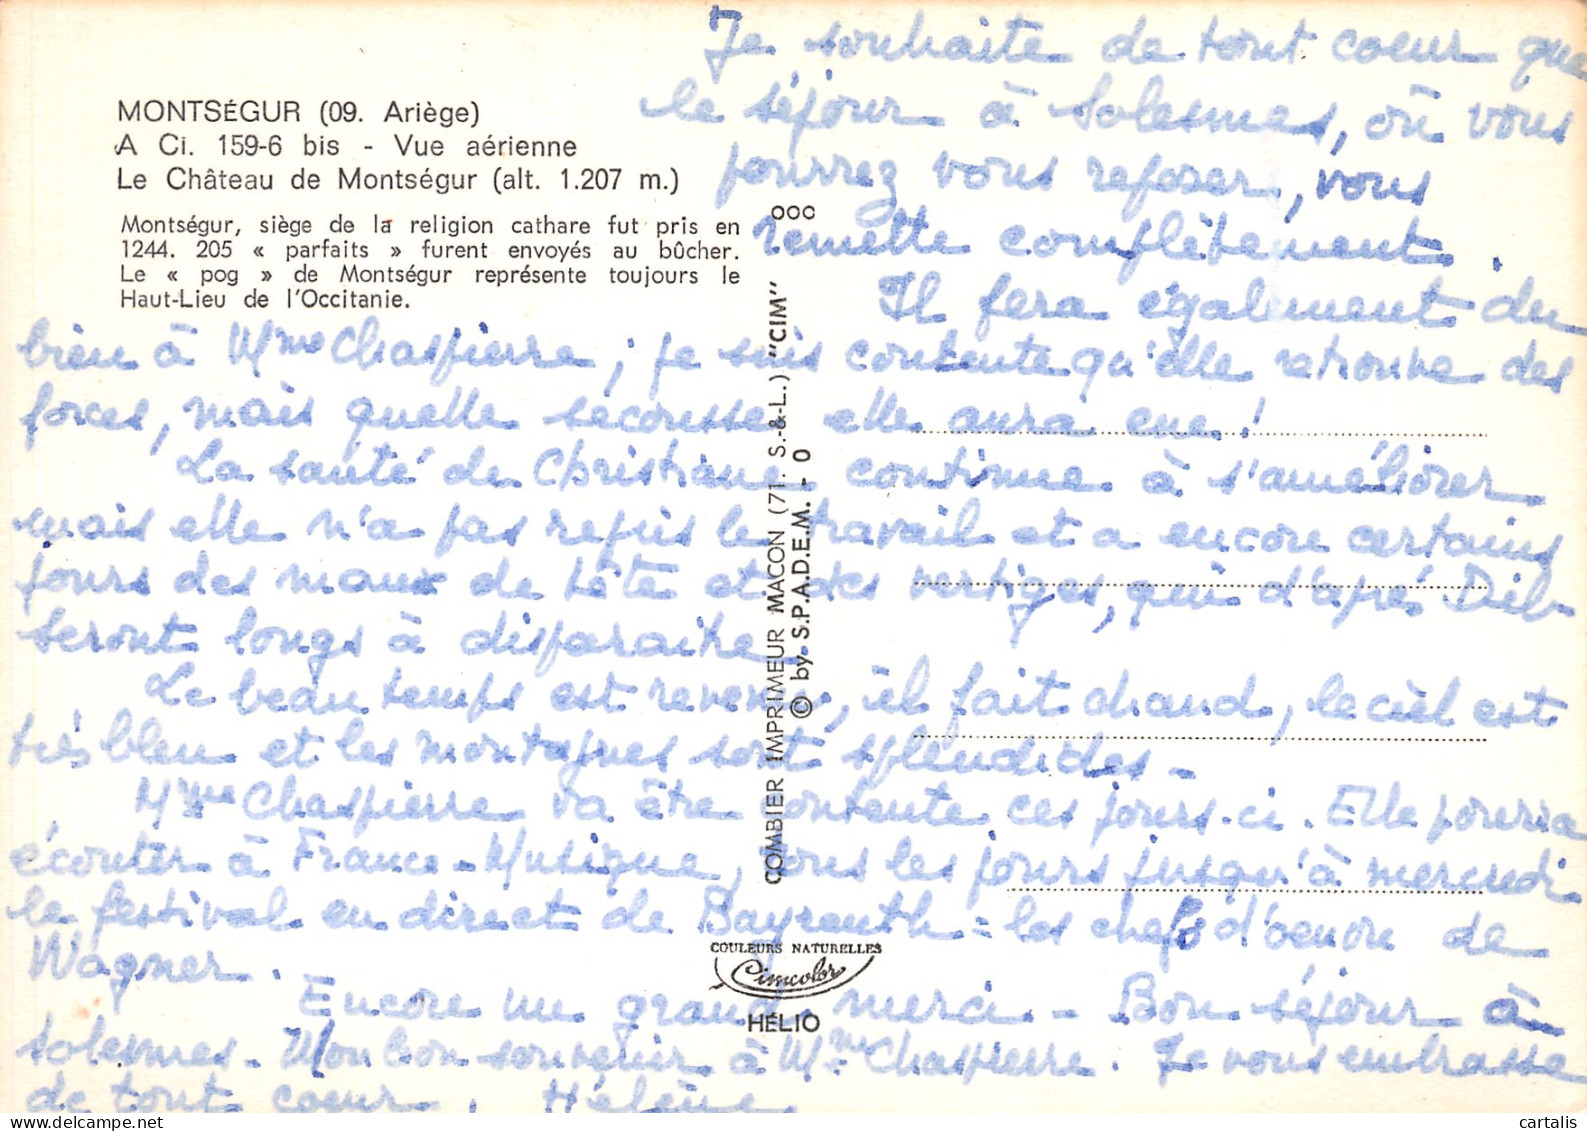 MONTSÉGUR (09. Ariège)
A Ci. 159-6 bis - Vue aérienne
Le Château de Montségur (alt. 1.207 m.)
Montségur, siège de la religion cathare fut pris en
1244. 205 « parfaits » furent envoyés au bûcher.
Le « pog » de Montségur représente toujours le
Haut-Lieu de l'Occitanie.
Je souhaite de tout coeur que
le séjour à Solesmes, où vous
pourrez vous reposer, vous
remette complètement.
Il fera également du
bien à Mme Chaspierre, je suis contente qu'elle retrouve des
forces, mais quelle secousse elle aura eue !
La santé de Christiane continue à s'améliorer
mais elle n'a pas repris le travail et a encore certains
jours des maux de tête et des vertiges, qui d'après Dieb
seront longs à disparaitre.
Le beau temps est revenu, il fait chaud, le ciel est
très bleu et les montagnes sont splendides -
Mme Chaspierre va être contente ces jours-ci. Elle pourra
écouter à France-Musique, tous les jours jusqu'à mercredi
le festival en direct de Bayreuth = les chefs d'oeuvre de
Wagner.
Encore un grand merci - Bon séjour à
Solesmes - Mon bon souvenir à Mme Chaspierre. Je vous embrasse
de tout coeur. Hélène
OOC
COMBIER IMPRIMEUR MACON (71. S.-&-L.) "CIM"
© by S.P.A.D.E.M. - O
COULEURS NATURELLES
Cimcolor
HÉLIO
www.delcampe.net
cartalis